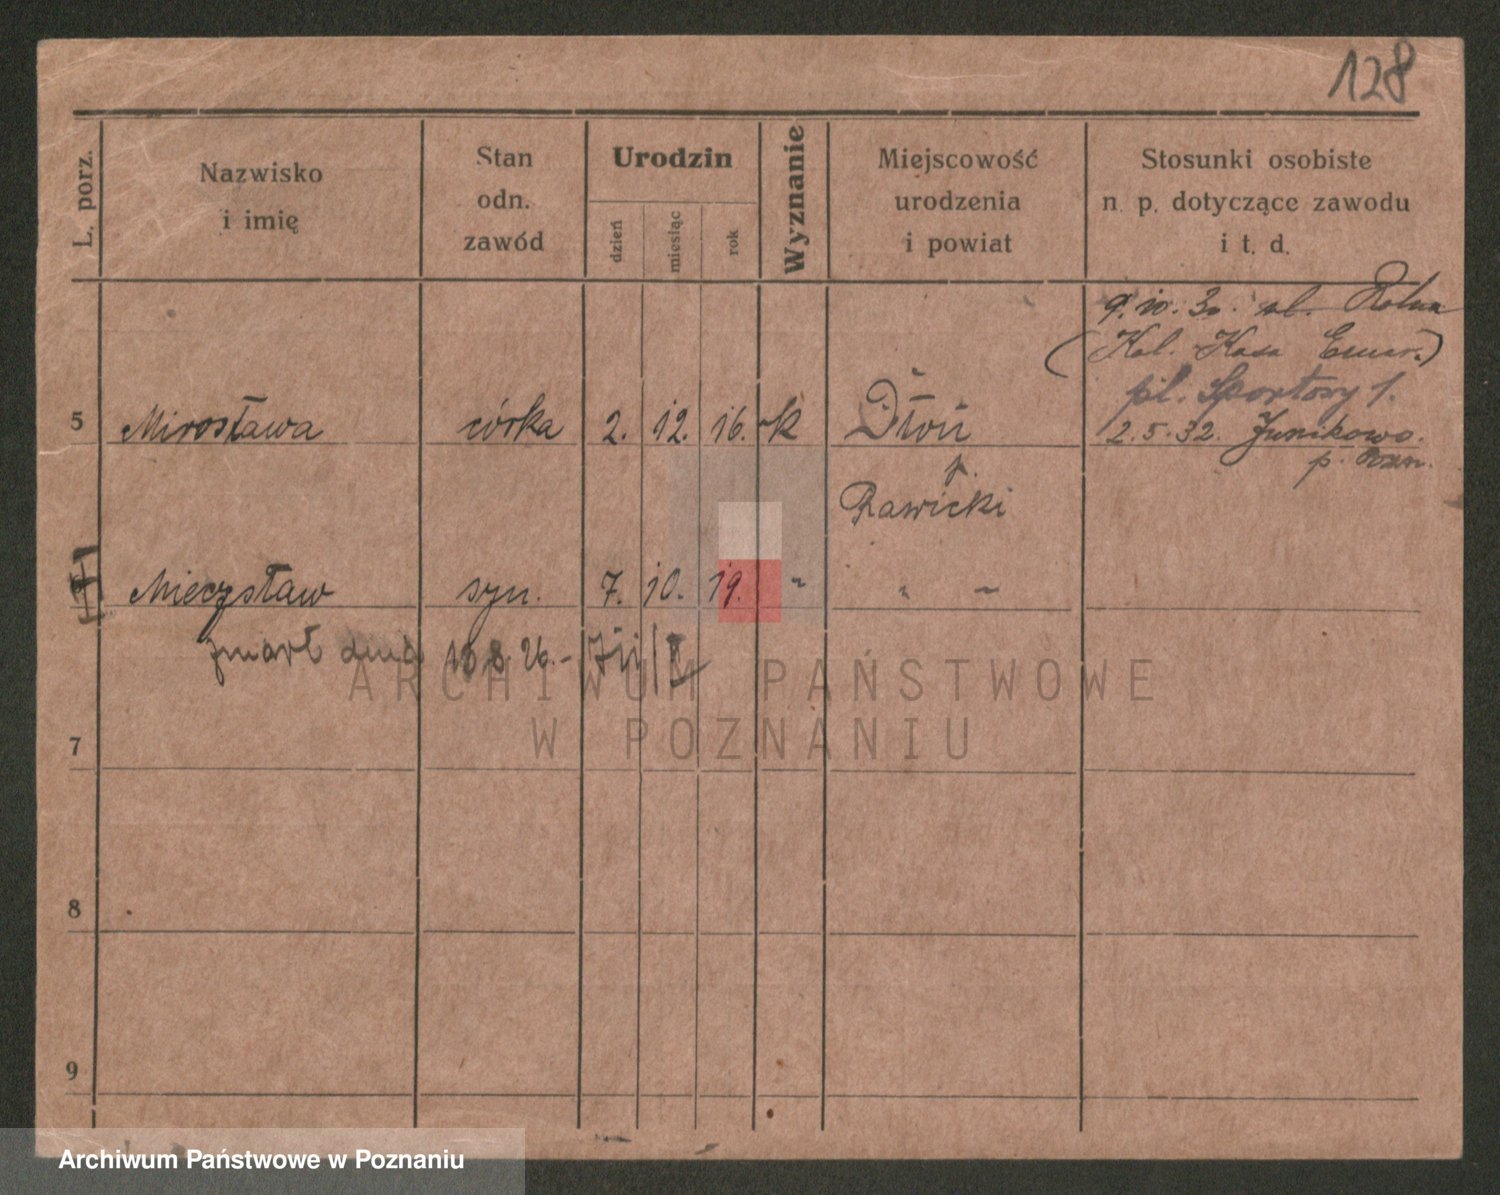 128
L. porz.
Nazwisko
i imię
Stan
odn.
zawód
Urodzin
dzień
miesiąc
rok
Wyznanie
Miejscowość
urodzenia
i powiat
Stosunki osobiste
n. p. dotyczące zawodu
i t. d.
9.10.30. ul. Rolna
(Kol. Kasa Emer.)
pl. Sportowy 1.
5 Mirosława córka 2. 12. 16. k Dłoń 2.5.32. Junikowo.
p. Pozn.
p.
Rawicki
Mieczysław syn. 7. 10. 19. " " "
zmarł dnia 8.26.-
ARCHIWUM PAŃSTWOWE
W POZNANIU
7
8
9
Archiwum Państwowe w Poznaniu